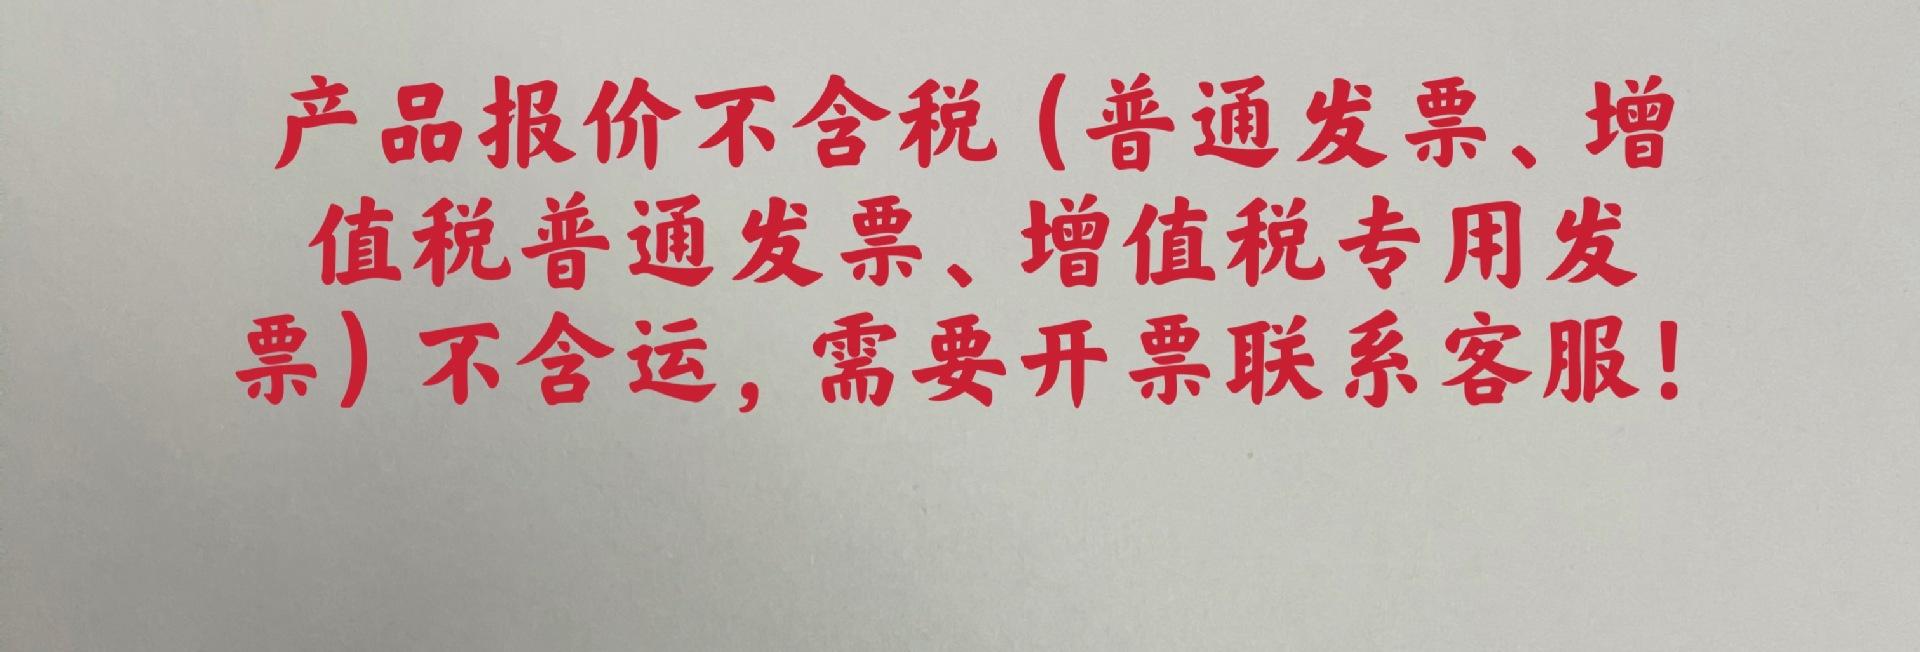 产品报价不含税(普通发票、增
值税普通发票、增值税专用发
票)不含运,需要开票联系客服!